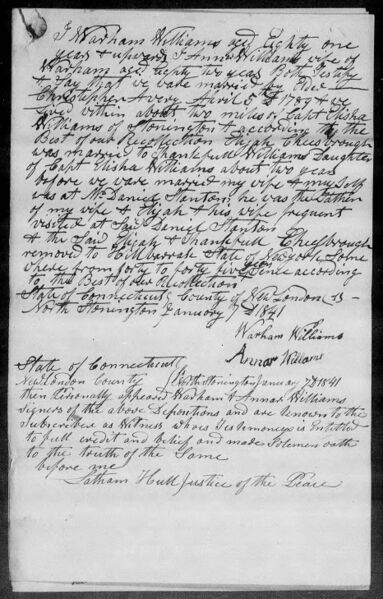 I Warham Williams aged Eighty one
years & upwards I Annar Williams wife of
Warham aged eighty two years Both Testify
& Say that we ware married by Elder
Christopher Avery April 5th 1789 & we
live within about two miles of Capt Elisha
Williams of Stonington & according to the
Best of our Recollection Elijah Cheesbrough
was married to Thankfull Williams Daughter
of Capt Elisha Williams about two years
before we ware married my wife & myself
was at Mr Daniel Stanton, he was the Father
of my wife & Elijah & his wife frequent
visited at Said Daniel Stanton
& the Said Elijah & Thankfull Cheesbrough
removed to State of New york Some
where from forty to forty five years Sence according
to the Best of our Recollection
State of Connecticut County of New London
North Stonington January 7th 1841
Warham Williams
Annar Williams
State of Connecticut
New London County } North Stonington January 7th 1841
then Personally appeared Warham & Annar Williams
signers of the above Depositions and are known to the
Subscriber as Witness whose Testimoneys is Entitled
to full credit and belief and made Solemn oath
to the truth of the Same
before me
Latham Hull Justice of the Peace